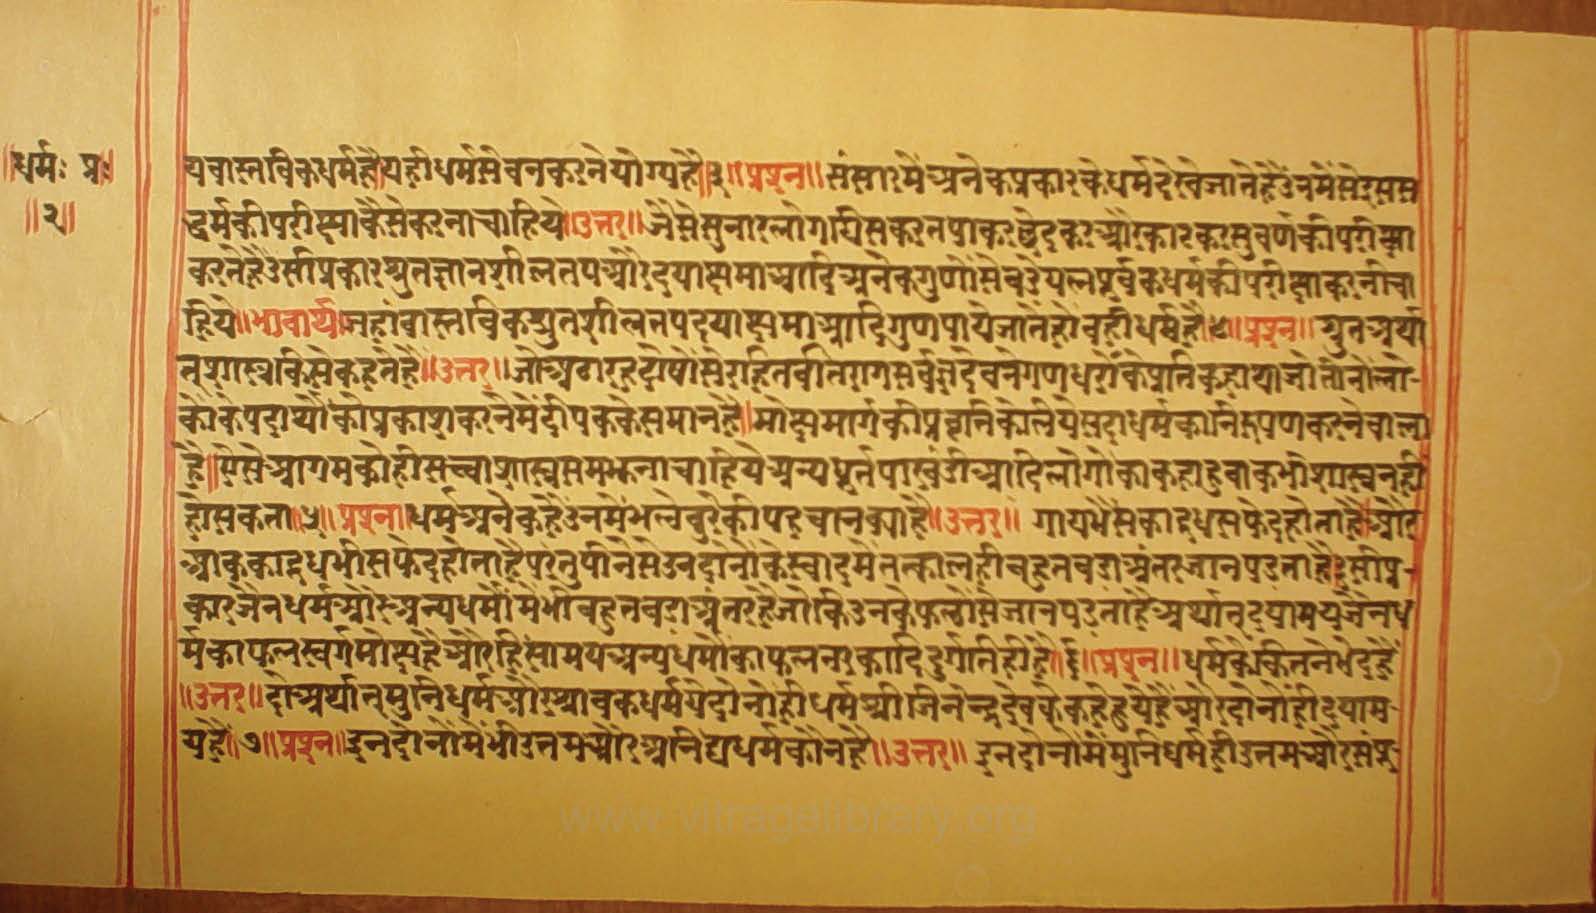 ॥धर्मः प्रः॥
॥२॥
यवास्तविकधर्महै॥यहीधर्मसेवनकरनेयोग्यहै॥३॥॥प्रश्न॥संसारमेंअनेकप्रकारकेधर्मदेखेजातेहैंउनमेंसेइसस
द्धर्मकीपरीक्षाकैसेकरनाचाहिये॥उत्तर॥जैसेसुनारलोगघिसकरतपाकरछेदकरऔरकाटकरसुवर्णकीपरीक्षा
करतेहैंउसीप्रकारश्रुतज्ञानशीलतपऔरदयाक्षमाआदिअनेकगुणोंसेबडेयत्नपूर्वकधर्मकीपरीक्षाकरनीचा
हिये॥भावार्थ॥जहांवास्तविकश्रुतशीलतपदयाक्षमाआदिगुणपायेजातेहोंवहीधर्महै॥४॥प्रश्न॥श्रुतअर्था
त्शास्त्रकिसेकहतेहैं॥उत्तर॥जोअठारहदोषोंसेरहितवीतरागसर्वज्ञदेवनेगणधरोंकेप्रतिकहाथाजोतीनोंलो-
कोंकेपदार्थोंकोप्रकाशकरनेमेंदीपककेसमानहै॥मोक्षमार्गकीप्रवृत्तिकेलियेसदाधर्मकानिरूपणकरनेवाला
है॥ऐसेआगमकोहीसच्चाशास्त्रसमझनाचाहियेअन्यधूर्तपाखंडीआदिलोगोंकाकहाहुवाकभीशास्त्रनहीं
होसकता॥५॥प्रश्न॥धर्मअनेकहैंउनमेंभलेबुरेकीपहचानक्याहै॥उत्तर॥गायभैंसकादूधसफेदहोताहै॥और
आककादूधभीसफेदहोताहैपरंतुपीनेसेउनदोनोंकेस्वादमेंतत्कालहीबहुतबडाअंतरजानपडताहै॥इसीप्र-
कारजैनधर्मऔरअन्यधर्मोंमेंभीबहुतबडाअंतरहैजोकिउनकेफलोंसेजानपडताहैअर्थात्दयामयजैनध
र्मकाफलस्वर्गमोक्षहैऔरहिंसामयअन्यधर्मोंकाफलनरकादिदुर्गतिहीहै॥६॥प्रश्न॥धर्मकेकितनेभेदहैं
॥उत्तर॥दोअर्थात्मुनिधर्मऔरश्रावकधर्मयेदोनोंहीधर्मश्रीजिनेन्द्रदेवकेकहेहुयेहैंऔरदोनोंहीदयाम-
यहैं॥७॥प्रश्न॥इनदोनोंमेंभीउत्तमऔरअनिंद्यधर्मकौनहै॥उत्तर॥इनदोनोंमेंमुनिधर्महीउत्तमऔरसंपू-
www.vitragalibrary.org